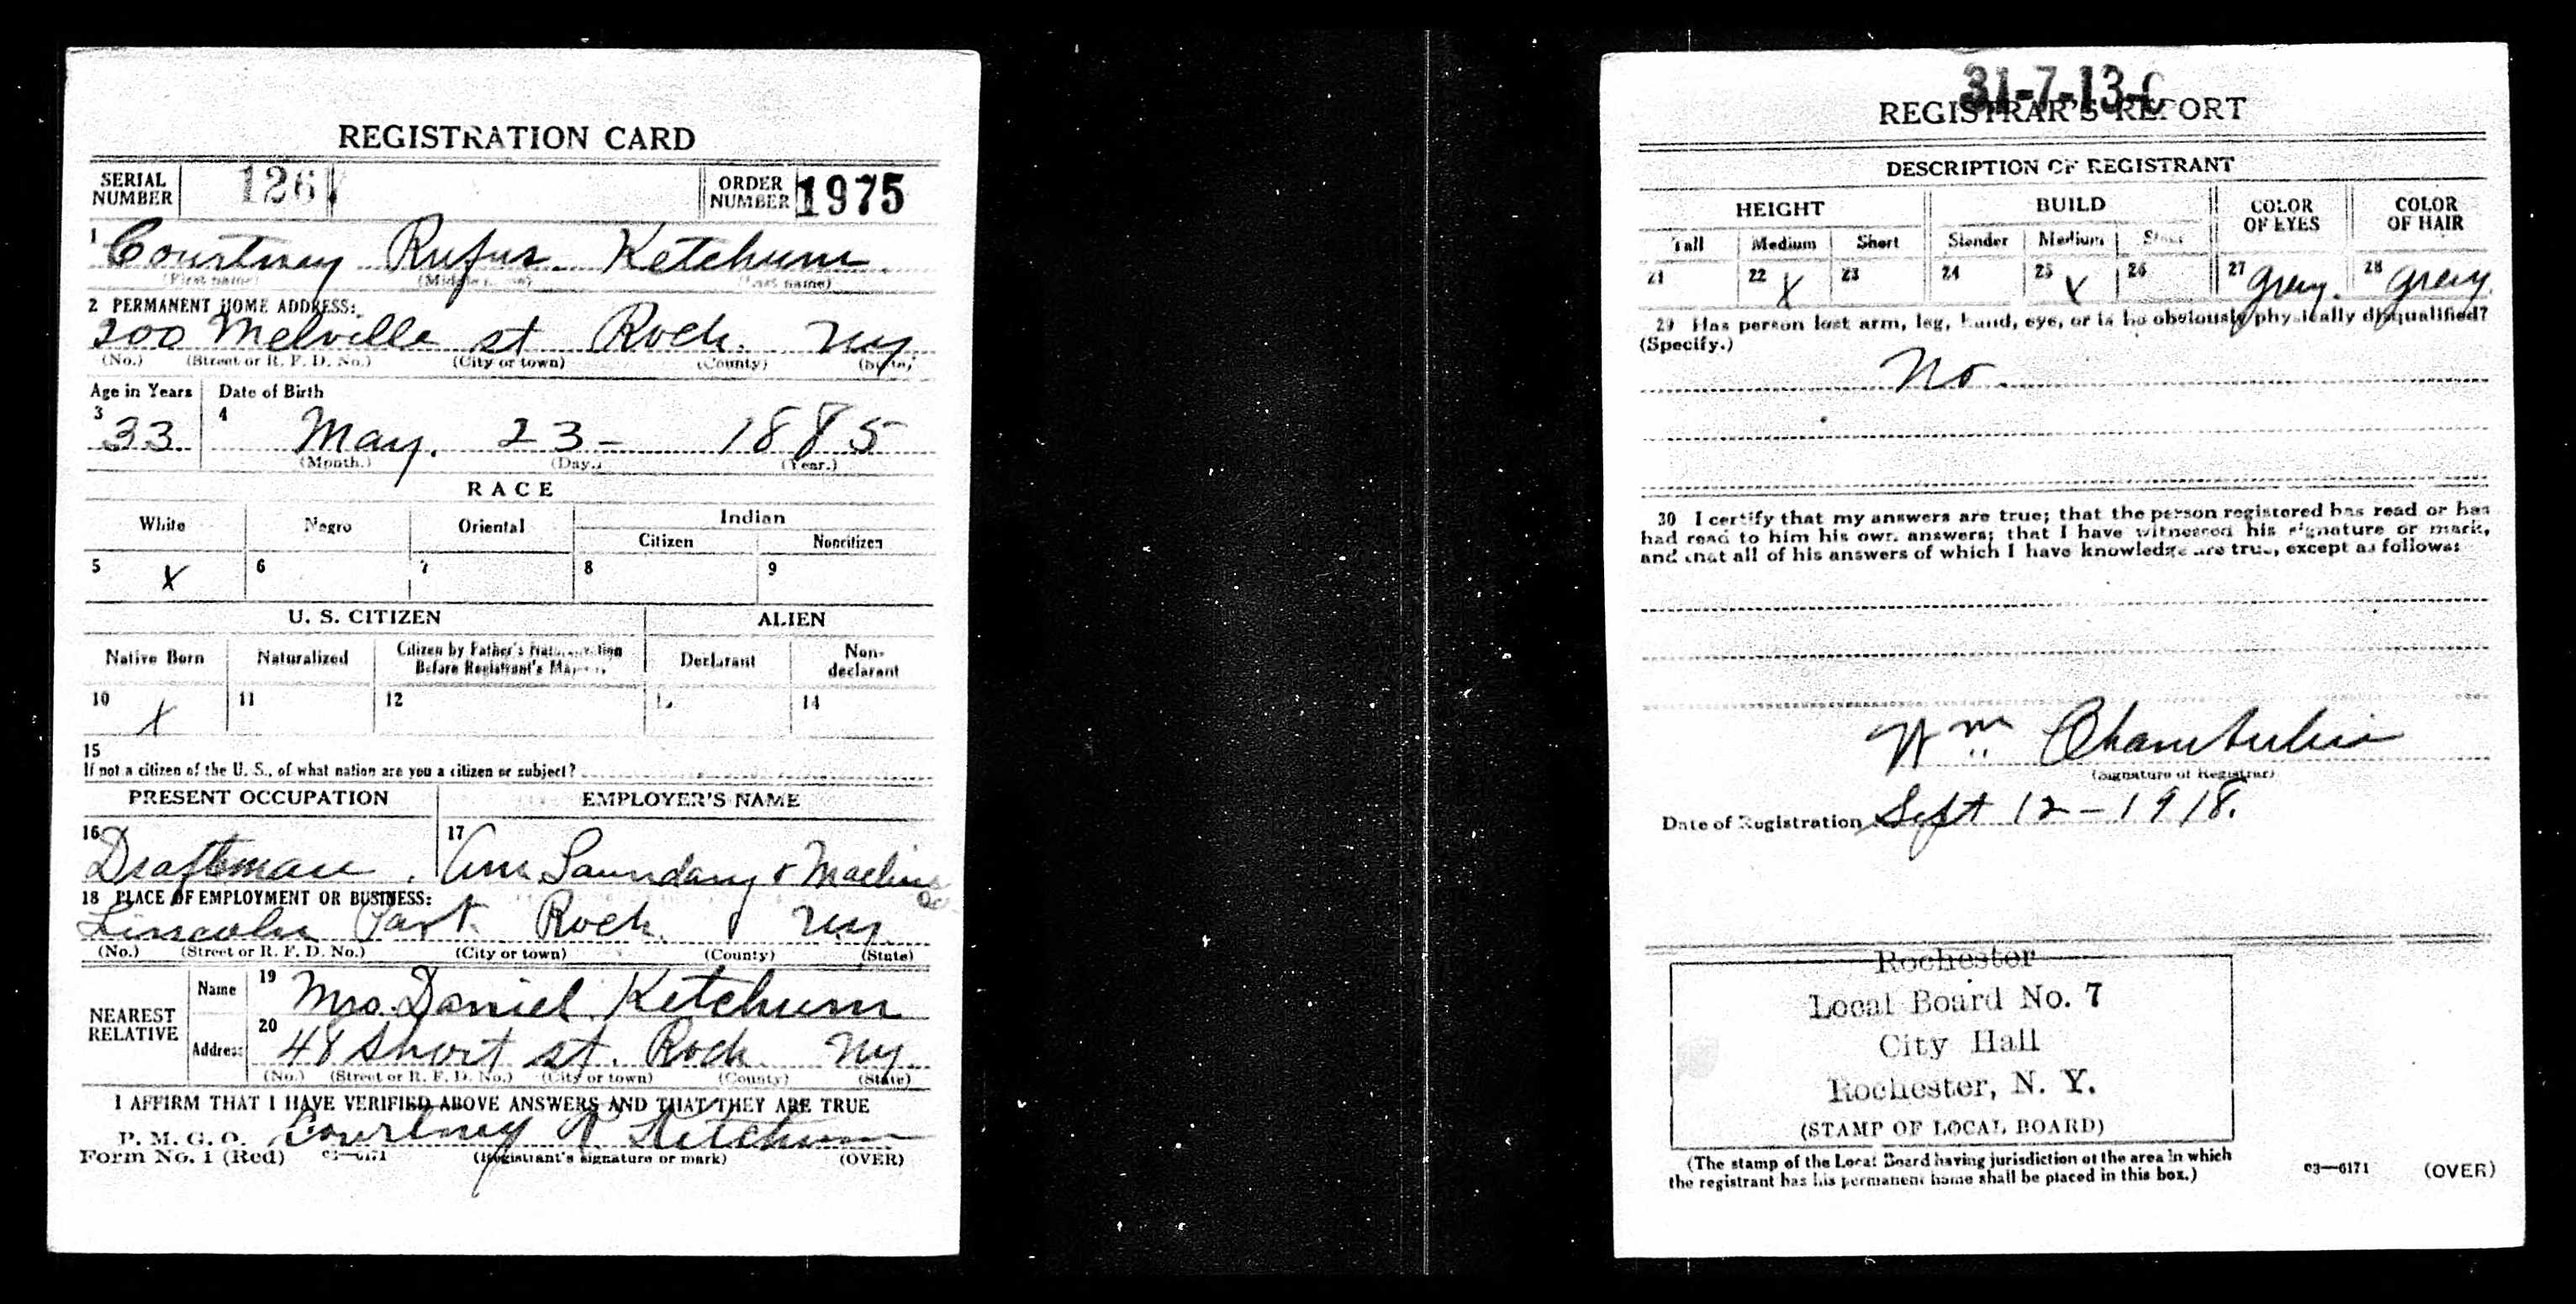 REGISTRATION CARD
SERIAL NUMBER 126 ORDER NUMBER 1975
1 Courtney Rufus Ketchum
(First name) (Middle name) (Last name)
2 PERMANENT HOME ADDRESS:
200 Melville st Roch. NY
(No.) (Street or R. F. D. No.) (City or town) (County) (State)
Age in Years Date of Birth
3 33 4 May. 23 - 1885
(Month.) (Day.) (Year.)
RACE
White Negro Oriental Indian
Citizen Noncitizen
5 X 6 7 8 9
U. S. CITIZEN ALIEN
Native Born Naturalized Citizen by Father's Naturalization Before Registrant's Majority Declarant Non-declarant
10 X 11 12 13 14
15
If not a citizen of the U. S., of what nation are you a citizen or subject?
PRESENT OCCUPATION EMPLOYER'S NAME
16 Draftsman. 17 Am Laundary & Machine
18 PLACE OF EMPLOYMENT OR BUSINESS:
Lincoln Park Roch. NY
(No.) (Street or R. F. D. No.) (City or town) (County) (State)
NEAREST RELATIVE
Name 19 Mrs. Daniel Ketchum
Address 20 48 Short st. Roch. NY.
(No.) (Street or R. F. D. No.) (City or town) (County) (State)
I AFFIRM THAT I HAVE VERIFIED ABOVE ANSWERS AND THAT THEY ARE TRUE
P. M. G. O. Courtney R Ketchum
Form No. 1 (Red) 03—6171 (Registrant's signature or mark) (OVER)
31-7-13-C
REGISTRAR'S REPORT
DESCRIPTION OF REGISTRANT
HEIGHT BUILD COLOR OF EYES COLOR OF HAIR
Tall Medium Short Slender Medium Stout
21 22 X 23 24 25 X 26 27 Grey. 28 Grey.
29 Has person lost arm, leg, hand, eye, or is he obviously physically disqualified?
(Specify.)
No.
30 I certify that my answers are true; that the person registered has read or has
had read to him his own answers; that I have witnessed his signature or mark,
and that all of his answers of which I have knowledge are true, except as follows:
Wm Chamberlin
(Signature of Registrar)
Date of Registration Sept 12 - 1918.
Rochester
Local Board No. 7
City Hall
Rochester, N. Y.
(STAMP OF LOCAL BOARD)
(The stamp of the Local Board having jurisdiction of the area in which
the registrant has his permanent home shall be placed in this box.)
03—6171 (OVER)